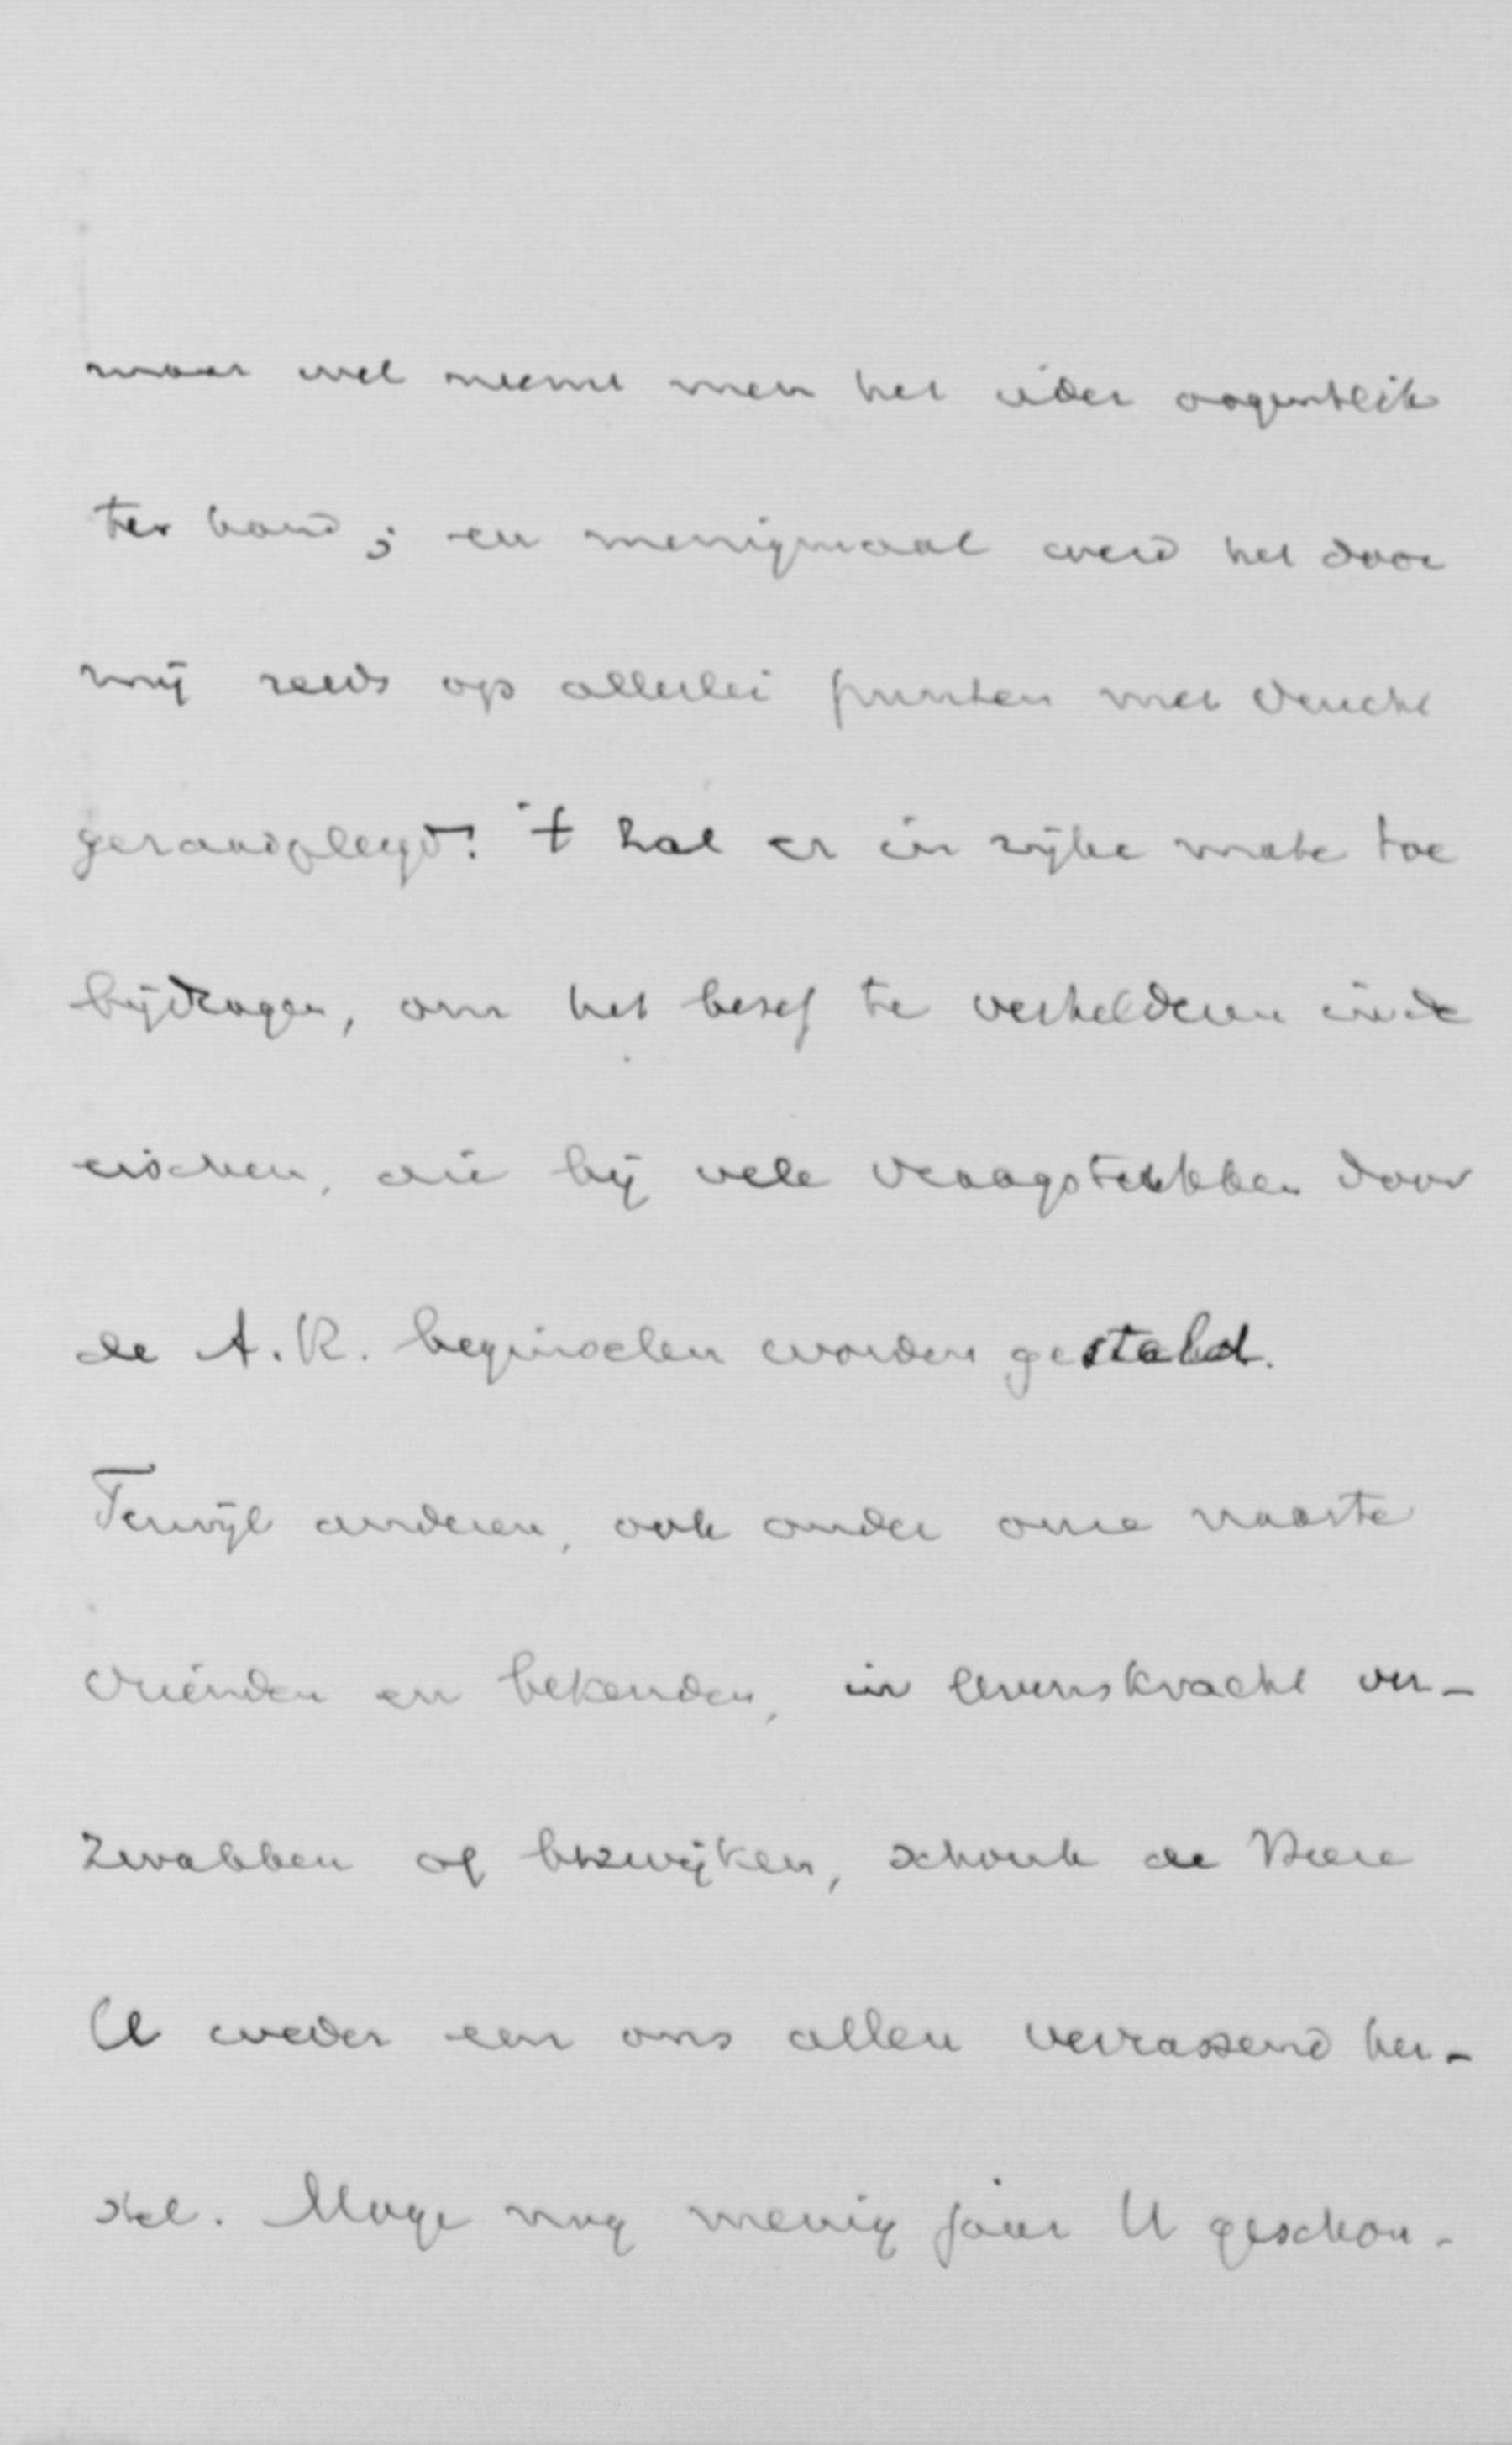 maar wel neemt men het ieder oogenblik
ter hand; en menigmaal werd het door
mij reeds op allerlei punten met vrucht
geraadpleegd. 't Zal er in rijke mate toe
bijdragen, om het besef te verhelderen in de
eischen, die bij vele vraagstukken door
de A.R. beginselen worden gesteld.
Terwijl anderen, ook onder onze naaste
vrienden en bekenden, in levenskracht ver-
zwakken of bezwijken, schonk de Heere
U weder een ons allen verrassend her-
stel. Moge nog menig jaar U geschon-